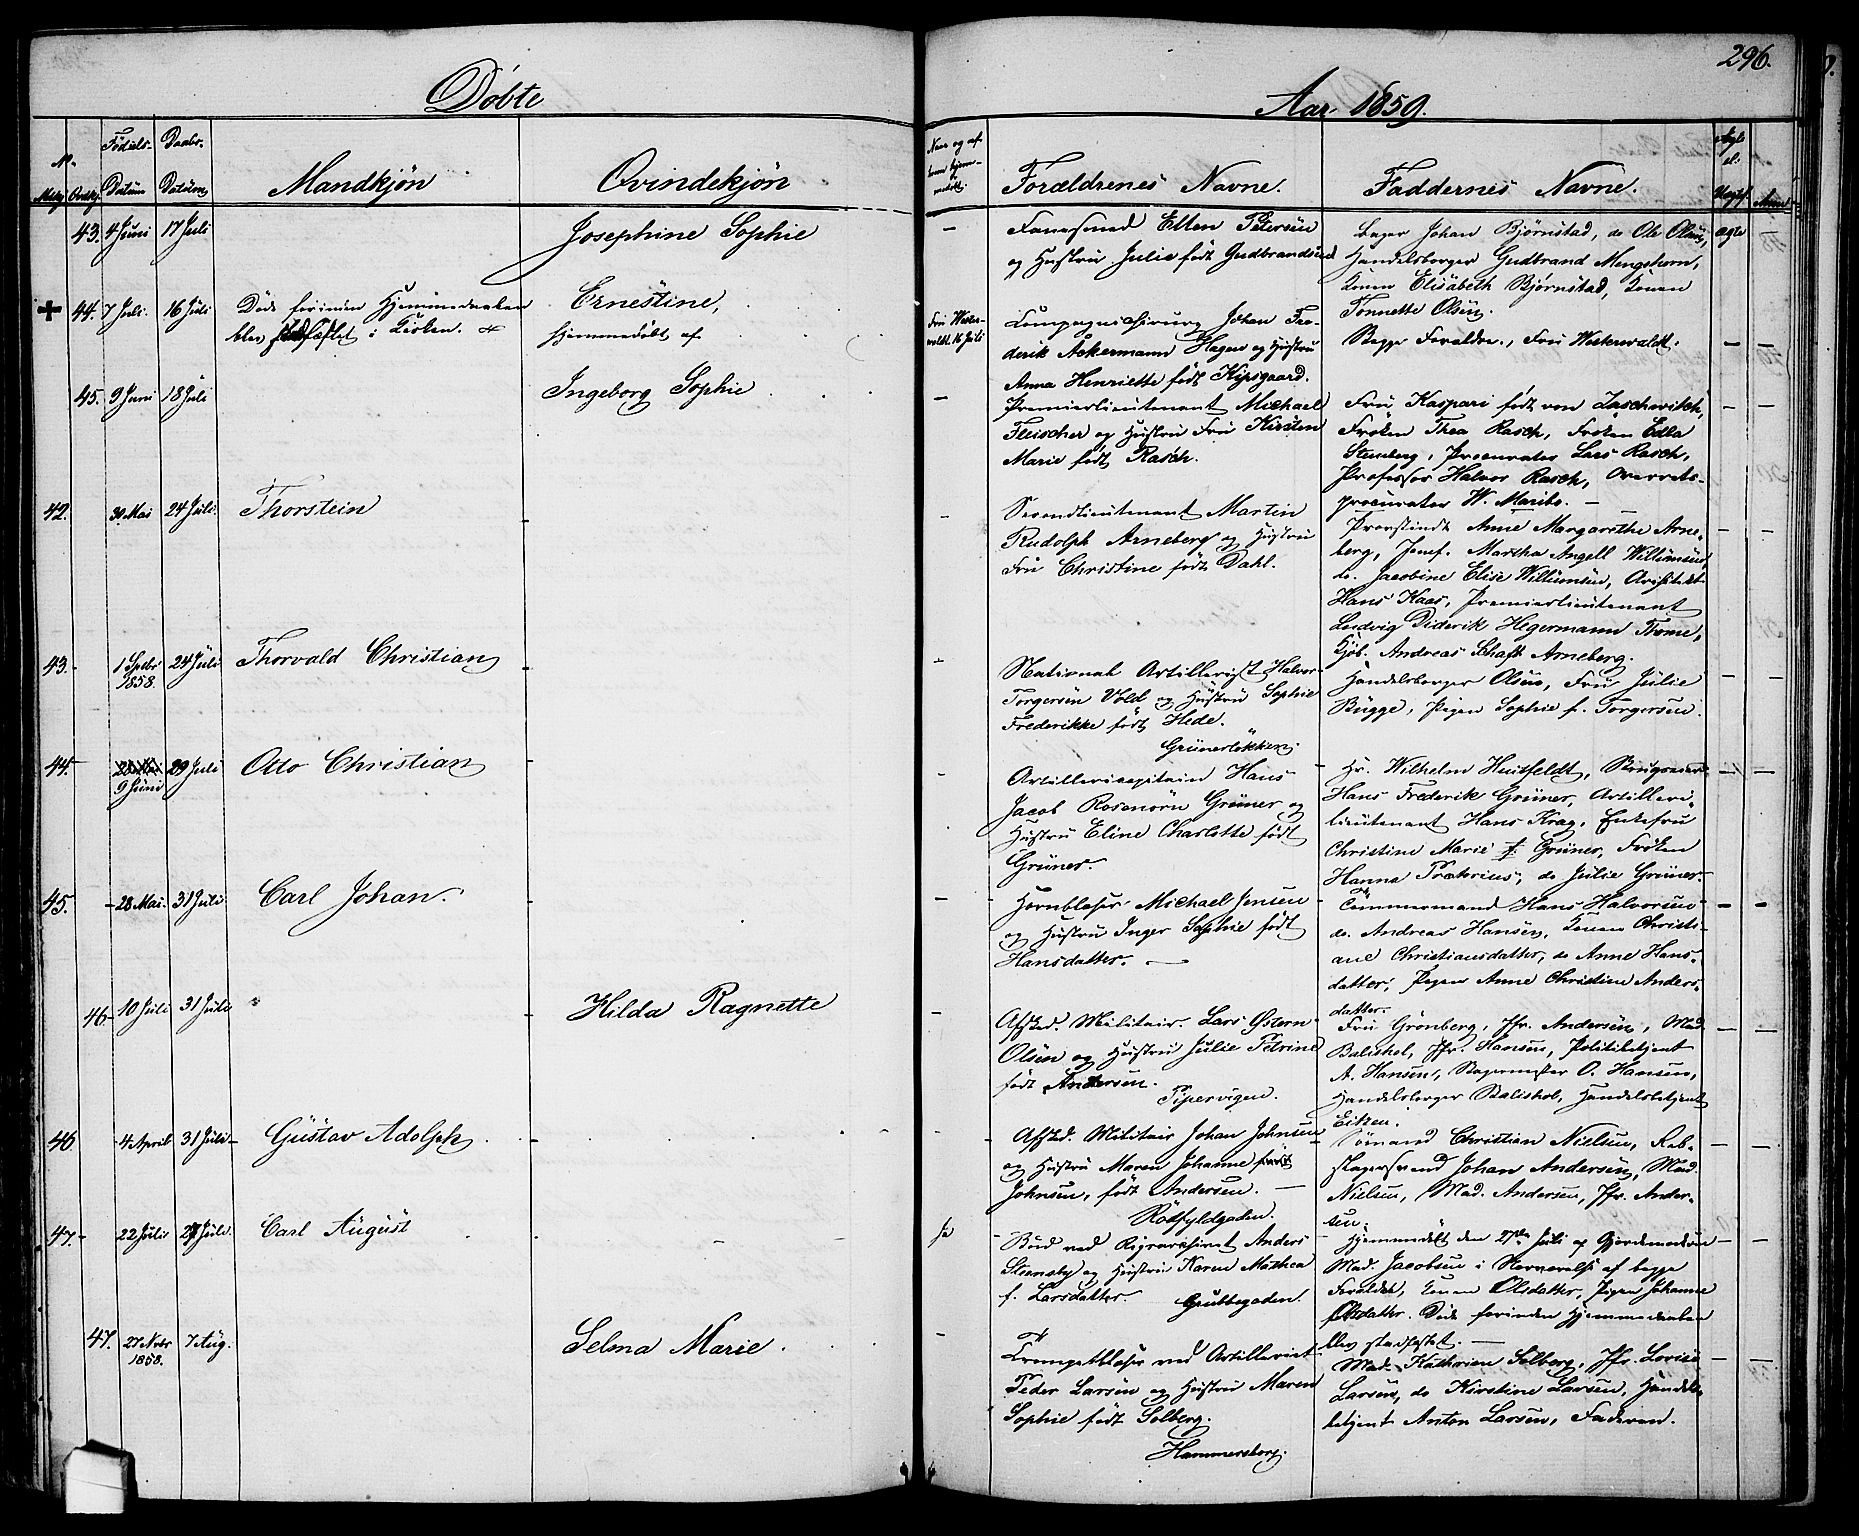 296.
Døbte
Aar 1859.
No.
Mdkj. Qvdkj.
Fødsels-
Datum
Daabs-
Datum
Mandkjøn
Qvindekjøn
Naar og af
hvem hjemme-
døbt.
Forældrenes Navne.
Faddernes Navne.
Ægte
el.
Uægte.
Anm.
43. 4 Juni 17 Juli
Josephine Sophie
Etten Petersen
og Hustru Julie født Gudbrandsen
Bager Johan Bjørnstad, do Ole Olsen,
Handelsborger Gudbrand Mengshorn,
Konen Elisabeth Bjørnstad, Konen
Tonnette Olsen.
ægte
44. 7 Juli 16 Juli
Døde forinden Hjemmedaaben
blev stadfæstet i Kirken.
Ernestine,
hjemmedøbt af
Fru Wester-
waldt 16 Juli
Compagnichirurg Johan Fre-
derik Ackermann Hagen og Hustru
Anna Henriette født Kipsgaard.
Begge Forældre, Fru Westerwaldt.
45. 9 Juni 18 Juli
Ingeborg Sophie
Premierlieutenant Michael
Fleischer og Hustru Fru Kirsten
Marie født Rasch.
Fru Kaspari født von Zaschwitch,
Frøken Thea Rasch, Frøken Edla
Stenberg, Procurator Lars Rasch,
Professor Halvor Rasch, Overrets-
procurator W. Maribo.
42. 30 Mai 24 Juli.
Thorstein
Secondlieutenant Martin
Rudolph Arneberg og Hustru
Fru Christine født Dahl.
Provstinde Anne Margarethe Arne-
berg, Jomf. Martha Angell Willumsen,
do. Jacobine Elise Willumsen, Arkitekt
Hans Kaas, Premierlieutenant
Ludvig Diderik Hegermann Thome,
Kjøb. Andreas Schaft Arneberg.
43. 1 Septbr 1858. 24 Juli
Thorvald Christian
National Artillerist Halvor
Torgersen Vold og Hustru Sophie
Frederikke født Hede.
Grünerløkken.
Handelsborger Olsen, Fru Julie
Bugge, Pigen Sophie f. Torgersen.
44. 28 Mai 9 Juni 29 Juli
Otto Christian
Artillericapitain Hans
Jacob Rosenørn Grüner og
Hustru Eline Charlotte født
Grüner.
Hr. Wilhelm Huitfeldt, Brugseier
Hans Frederik Grüner, Artilleri-
lieutenant Hans Krag, Enkefru
Christine Marie f. Grüner, Frøken
Hanna Prætorius, do Julie Grüner.
45. 28 Mai. 31 Juli
Carl Johan.
Hornblæser Michael Jensen
og Hustru Inger Sophie født
Hansdatter.
Tømmermand Hans Halvorsen
do. Andreas Hansen, Konen Christi-
ane Christiansdatter, do Anne Hans-
datter, Pigen Anne Christine Anders-
datter.
46. 10 Juli 31 Juli
Hilda Ragnette
Afsked. Militair. Lars Østern
Olsen og Hustru Julie Petrine
født Andersen.
Pipervigen.
Fru Grønberg, Jfr. Andersen, Mad.
Baliskol, Jfr. Hansen, Politibetjent
A. Hansen, Bagermester O. Hansen,
Handelsborger Baliskol, Handelsbetjent
Eitzen.
46. 4 April 31 Juli
Gustav Adolph
Afsked. Militair Johan Johnsen
og Hustru Maren Johanne
Johnsen, født Andersen.
Rødfyldgaden.
Sømand Christian Nielsen, Reb-
slagersvend Johan Andersen, Mad.
Nielsen, Mad. Andersen, Jfr. Ander-
sen.
47. 22 Juli 27 Juli.
Carl August
Ja
Bud ved Rigsarchivet Anders
Steensby og Hustru Karen Mathea
f. Larsdatter. Grubbegaden.
Hjemmedøbt den 27de Juli af Gjordemoderen
Mad. Jacobsen i Nærværelse af begge
Forældre, Konen Olsdatter, Pigen Johanne
Olsdatter. Døde forinden Hjemmedaaben
blev stadfæstet.
47. 27 Novbr 1858. 7 Aug.
Selma Marie
Trompetblæser ved Artilleriet
Peder Larsen og Hustru Maren
Sophie født Solberg.
Hammersborg.
Mad. Kathrine Solberg, Jfr. Lovise
Larsen, do Kirstine Larsen, Handels-
betjent Anton Larsen, Faderen.